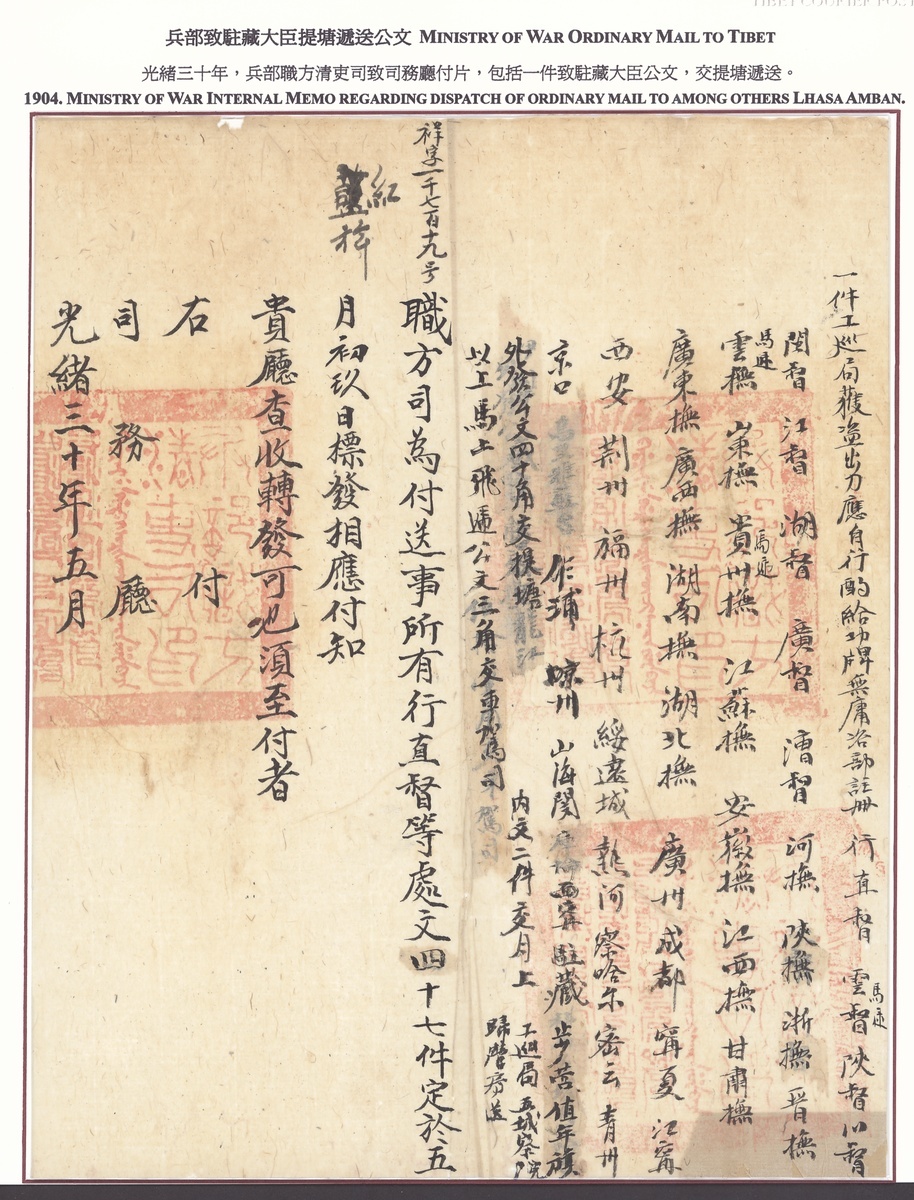 兵部致駐藏大臣提塘遞送公文 MINISTRY OF WAR ORDINARY MAIL TO TIBET
光緒三十年，兵部職方清吏司致司務廳付片，包括一件致駐藏大臣公文，交提塘遞送。
1904. MINISTRY OF WAR INTERNAL MEMO REGARDING DISPATCH OF ORDINARY MAIL TO AMONG OTHERS LHASA AMBAN.
一件工巡局獲盜出力應自行酌給功牌無庸咨部註冊 行直督 雲督 馬遞 陝督 川督
閩督 江督 湖督 廣督 漕督 河撫 陝撫 浙撫 晉撫
雲撫 馬遞 東撫 貴州撫 馬遞 江蘇撫 安徽撫 江西撫 甘肅撫
廣東撫 廣西撫 湖南撫 湖北撫 廣州 成都 寧夏 江寧
西安 荊州 福州 杭州 綏遠城 熱河 察哈尔 密云 青州
京口 乍浦 涼州 山海関 西寧 駐藏 步营 值年旗
外發公文四十角交提塘
內文二件交月上 工巡局 五城察院
以上馬上飛遞公文三角交車駕司
祥字一千七百十九号
職方司為付送事所有行直督等處文四十七件定於五
紅
月初玖日標發相應付知
貴廳查收轉發可也須至付者
右 付
司 務 廳
光緒三十年五月